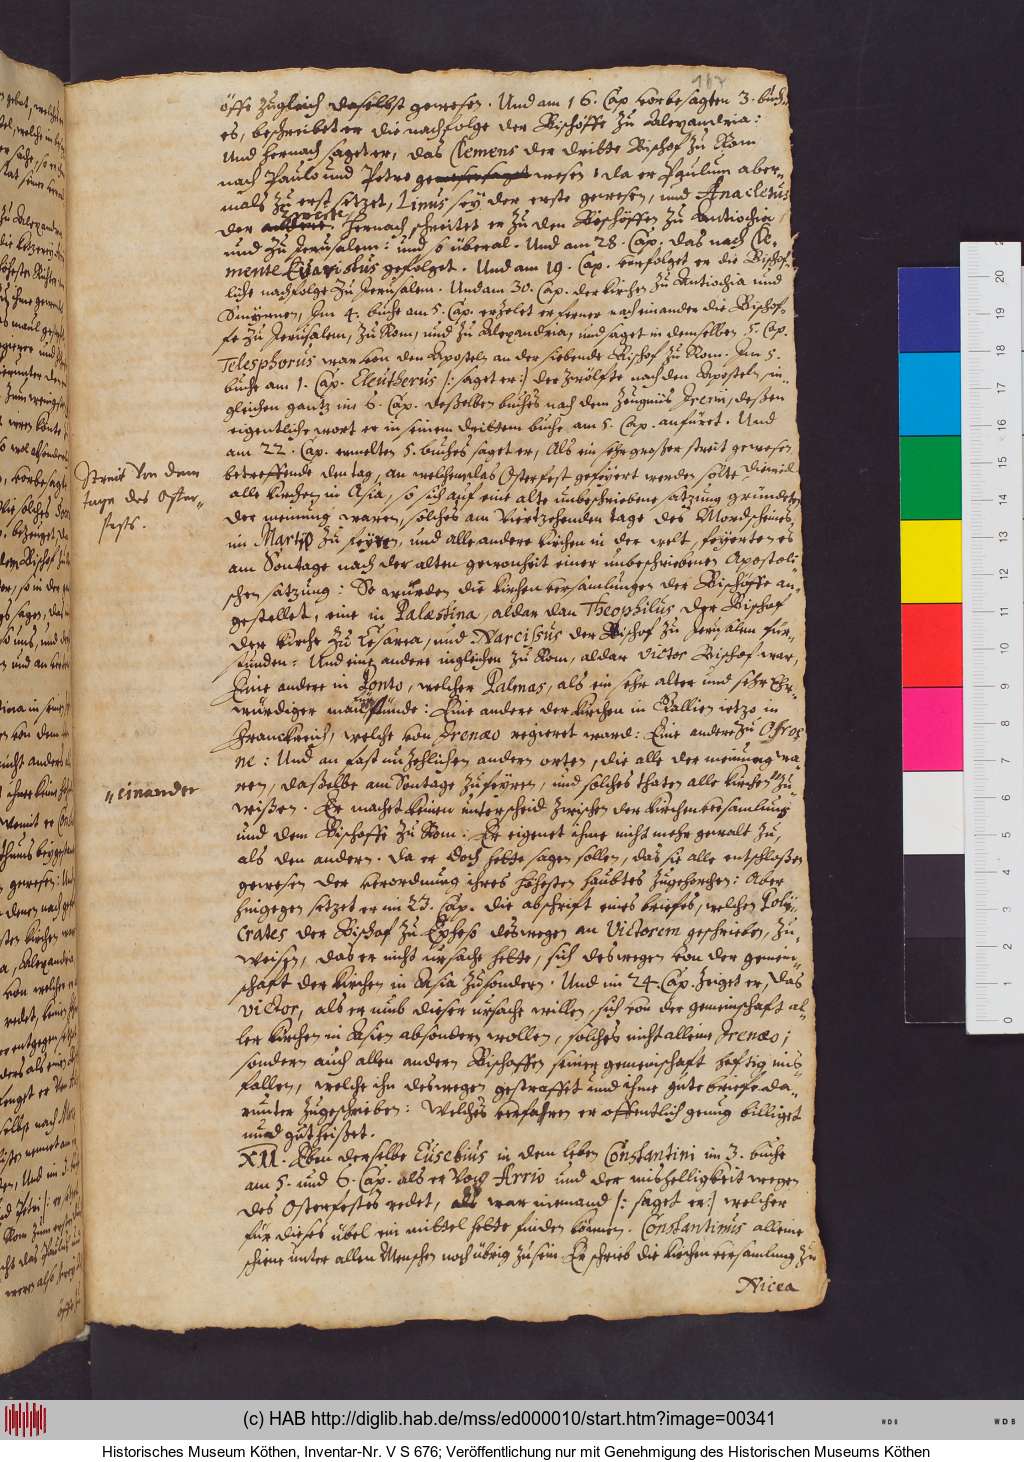 167
öffe zugleich daselbst gewesen. Und am 16. Cap. vorbesagten 3. buch„
es, beschreibet er die nachfolge der Bischöffe zu Alexandria:
Und hernach saget er, das Clemens der dritte Bischof zu Rom
nach Paulo und Petro gewesen, da er Paulum aber„
mals zu erst setzet, Linus sey der erste gewesen, und Anacletus
der zweite. hernach schreitet er zu den Bischöffen zu Antiochia,
und zu Jerusalem: und so überal. Und am 28. Cap. das nach Cle„
mente Evaristus gefolget. Und am 19. Cap. verfolget er die Bischof„
liche nachfolge zu Jerusalem. Und am 30. Cap. der kirchen zu Antiochia und
Smyrnen, Im 4. buche am 5. Cap. erzelet er ferner nach einander die Bischof„
fe zu Jerusalem, zu Rom, und zu Alexandria, und saget in demselben 5. Cap.
Telesphorus war von den Aposteln an der siebende Bischof zu Rom. Im 5.
buche am 1. Cap. Eleutherus /: saget er :/ der zwölfte nach den Aposteln, in„
gleichen gantz im 6. Cap. deßelben buches nach dem Zeugnüs Irenæi, deßen
eigentliche wort er in seinem dritten buche am 5. Cap. anfüret. Und
am 22. Cap. ermelten 5. buches saget er, Als ein sehr großer streit gewesen
betreffende den tag, an welchem das Osterfest gefeyert werden solte, dieweil
alle kirchen in Asia, so sich auf eine alte unbeschriebene satzung gründeten
der meinung waren, solches am Viertzehenden tage des Mondscheines,
im Martio zu feyren, und alle andere kirchen in der welt, feyerten es
am Sontage nach der alten gewonheit einer unbeschriebenen Apostoli„
schen satzung: So wurden die kirchenversamlungen der Bischöffe an„
gestellet, eine in Palæstina, aldar dan Theophilus der Bischof
der kirche zu Cesarea, und Narcissus der Bischof zu Jerusalem für„
stunden: Und eine andere ingleichen zu Rom, aldar Victor Bischof war,
Eine andere in Ponto, welcher Palmas, als ein sehr alter und sehr Ehr„
würdiger man fürstünde: Eine andere der kirchen in Gallien ietzo in
Franckreich, welche von Irenæo regieret ward: Eine andere zu Osroe
ne: Und an fast unzehlichen andern orten, die alle der meinung wa„
ren, daßelbe am Sontage zu feyren, und solches thaten alle kirchen zu
wißen. Er machet keinen unterscheid zwischen der kirchenversamlung
und dem Bischoffe zu Rom: Er eigenet ihme nicht mehr gewalt zu,
als den andern. da er doch hette sagen sollen, das sie alle entschloßen
gewesen der verordnung ihres höhesten haubtes zugehorchen: Aber
hingegen setzet er im 23. Cap. die abschrift eines briefes, welchen Poly„
crates der Bischof zu Epheso deswegen an Victorem geschrieben, zu„
weisen, das er nicht ursache hette, sich deswegen von der gemein„
schaft der kirchen in Asia zu sondern. Und im 24. Cap. zeiget er, das
Victor, als er umb dieser ursache willen, sich von der gemeinschaft al„
ler kirchen in Asien absondern wollen, solches nicht alleine Irenæo;
sondern auch allen andern Bischoffen seiner gemeinschaft heftig mis„
fallen, welche ihn deswegen gestraffet und ihme gute briefe da„
runter zugeschrieben: Welches verfahren er offentlich genug billiget
und gutheißet.
XII. Eben derselbe Eusebius in dem leben Constantini im 3. buche
am 5. und 6. Cap. als er von Arrio und der mishelligkeit wegen
des Osterfestes redet, war niemand /: saget er :/ welcher
für dieses übel ein mittel hette finden können. Constantinus alleine
schiene unter allen Menschen noch übrig zu sein. Er schrieb die kirchenversamlung zu
Nicea
Streit von dem
tage des Oster„
fests.
„einander
(c) HAB http://diglib.hab.de/mss/ed000010/start.htm?image=00341
Historisches Museum Köthen, Inventar-Nr. V S 676; Veröffentlichung nur mit Genehmigung des Historischen Museums Köthen